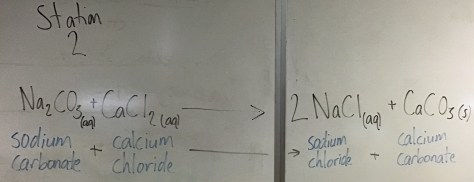 Station
2
Na₂CO₃(aq) + CaCl₂(aq) ⟶ 2 NaCl(aq) + CaCO₃(s)
sodium carbonate + calcium chloride ⟶ sodium chloride + calcium carbonate